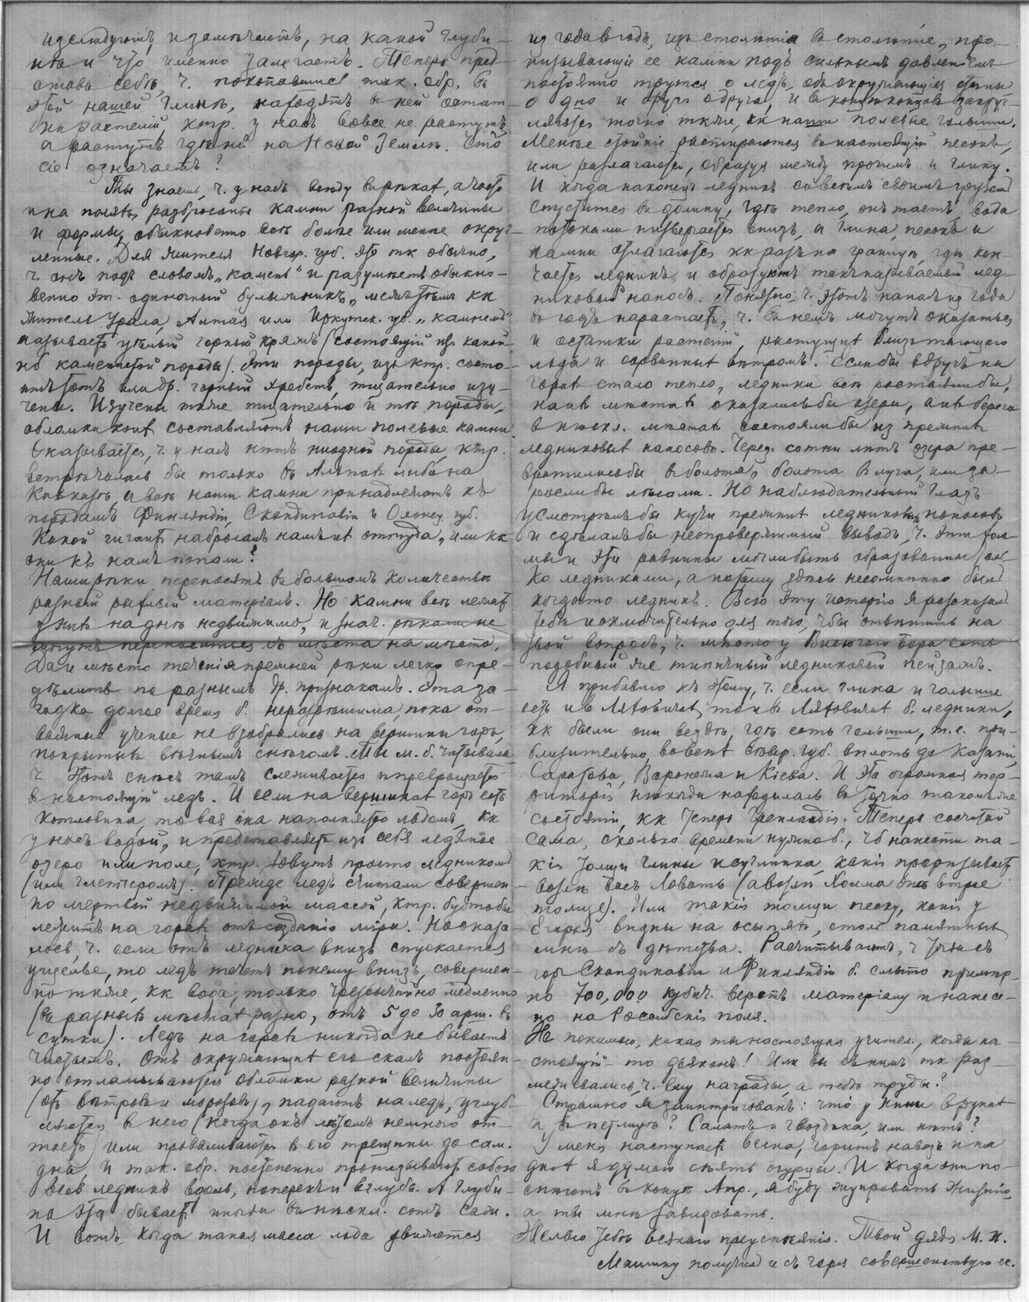 изслѣдуютъ, и замѣчаютъ, на какой глуби-
нѣ и что именно залегаетъ. Теперь пред-
ставь себѣ, ч. покопавшись так. обр. въ
этой нашей глинѣ, находятъ въ ней остат-
ки растеній, ктр. у насъ вовсе не растутъ
а растутъ гдѣ на Новой Землѣ. Что
сіе означаетъ?
Ты знаешь, ч. у насъ всюду въ рѣкахъ, а часто
и на поляхъ, разбросаны камни разной величины
и формы, обыкновенно всѣ болѣе или менѣе округ-
ленные. Для жителя Новгор. губ. это тк обычно,
ч. онъ подъ словомъ "камень" и разумѣетъ обыкно-
венно эт. одиночный булыжникъ, между тѣмъ кк
житель Урала, Алтая или Иркутск. губ. "камнемъ"
называетъ цѣлый горный кряжъ (состоящій из какой-
нб каменистой породы). Эти породы, изъ ктр. состо-
итъ тотъ или др. горный хребетъ, тщательно изу-
чены. Изучены также тщательно и тѣ породы,
обломки коихъ составляютъ наши полевые камни.
Оказывается, ч. у насъ нѣтъ ниодной породы, ктр.
встрѣчалась бы только въ Альпахъ либо на
Кавказѣ, а всѣ наши камни принадлежатъ къ
породамъ Финляндіи, Скандинавіи и Олонец. губ.
Какой гигантъ набросалъ намъ их оттуда, или кк
они къ намъ попали?
Наши рѣки переносятъ въ большомъ количествѣ
разный рыхлый матеріалъ. Но камни всѣ лежатъ
у нихъ на днѣ недвижимо, и знач. рѣками не
могутъ переноситься съ мѣста на мѣсто.
Да и мѣсто теченія прежней рѣки легко опре-
дѣлить по разнымъ др. признакамъ. Эта за-
гадка долгое время б. неразрѣшима, пока от-
важные ученые не взобрались на вершины горъ,
покрытыя вѣчнымъ снѣгомъ. Ты м. б. читывала
ч. этотъ снѣгъ тамъ слеживается и превращается
въ настоящій ледъ. И если на вершинахъ горъ есть
котловина, то вся она наполняется льдомъ, кк
у насъ водой, и представляетъ изъ себя ледяное
озеро или поле, ктр. зовутъ просто ледникомъ
(или глетчеромъ). Прежде ледъ считали совершен-
но мертвой недвижимой массой, ктр. будто бы
лежитъ на горахъ отъ созданія міра. Но оказа-
лось, ч. если отъ ледника внизъ спускается
ущелье, то ледъ течетъ по нему внизъ, совершен-
но также, кк вода, только чрезвычайно медленно
(въ разныхъ мѣстахъ разно, отъ 5 до 30 арш. въ
сутки). Ледъ на горахъ никогда не бываетъ
чистымъ. Отъ окружающихъ его скалъ постоян-
но отламываются обломки разной величины
(отъ вѣтровъ и морозовъ), падаютъ на ледъ, углуб-
ляются въ него (когда онъ лѣтомъ немного от-
таетъ) или проваливаются в его трещины до сам.
дна и так. обр. постепенно пронизываютъ собою
весь ледникъ вдоль, поперекъ и вглубь. А глуби-
на эта бываетъ иногда въ нѣскл. сотъ саж.
И вотъ, когда такая масса льда движется
из года въ годъ, изъ столѣтія въ столѣтіе, про-
низывающіе ее камни подъ сильнымъ давленіемъ
постоянно трутся о ледъ, объ окружающія стѣны
о дно и другъ о друга, и въ концѣ концовъ закруг-
ляются точно также, кк наши полевые голыши.
Менѣе стойкіе растираются въ настоящій песокъ,
или разлагаются, образуя между прочимъ и глину.
И когда наконецъ ледникъ со всѣмъ своимъ грузомъ
спустится въ долину, гдѣ тепло, онъ таетъ, вода
потоками низвергается внизъ, а глина, песокъ и
камни отлагаются кк разъ на границѣ, гдѣ кон-
чается ледникъ, и образуютъ такъ называемый лед-
никовый наносъ. Понятно, ч. этотъ наносъ из года
въ годъ нарастаетъ, ч. въ немъ могутъ оказаться
и остатки растеній, растущихъ близъ тающаго
льда и сорванныхъ вѣтромъ. Если бы вдругъ на
горахъ стало тепло, ледники всѣ растаяли бы,
на ихъ мѣстахъ оказались бы озера, а ихъ берега
в нѣскл. мѣстахъ состояли бы из прежнихъ
ледниковыхъ наносовъ. Через сотни лѣтъ озера пре-
вратились бы в болота, болота в луга, или за-
росли бы лѣсами. Но наблюдательный глазъ
усмотрѣлъ бы кучи прежнихъ ледниковыхъ наносовъ
и сдѣлалъ бы неопровержимый выводъ, ч. эти хол-
мы и эти равнины могли быть образованы толь-
ко ледниками, а потому здѣсь несомнѣнно былъ
когда-то ледникъ. Всю эту исторію я разсказалъ
тебѣ исключительно для того, чтобы отвѣтить на
твой вопросъ, ч. мѣсто у бора есть
подобный же типичный ледниковый пейзажъ.
Я прибавлю къ этому, ч. если глина и голыши
есть и в Лятовичахъ, то и в Лятовичахъ б. ледники,
кк были они вездѣ, гдѣ есть голыши, т. е. при-
близительно во всей сѣвер. губ. вплоть до Казани,
Саратова, Воронежа и Кіева. И эта огромная тер-
риторія нѣкогда находилась въ точно такомъ же
состояніи, кк теперь Гренландія. Теперь сосчитай
сама, сколько времени нужно б., чб нанести та-
кія толщи глины и суглинка, какія прорѣзываетъ
возлѣ васъ Ловать (а возлѣ Холма онѣ втрое
толще). Или такія толщи песку, какія у
видны на осыпяхъ, столь памятныхъ
мнѣ съ дѣтства. Расчитываютъ, ч. тутъ съ
горъ Скандинавіи и Финляндіи б. смыто примѣр-
но 700,000 кубич. верстъ матеріалу и нанесе-
но на Россійскія поля.
Не понимаю, какая ты настоящая учител., когда на-
стоящій-то дьяконъ! Или вы съ нимъ тк раз-
межевались, ч. ему награды, а тебѣ труды?
Страшно я заинтригованъ: что у Нины в рукахъ
и въ петлицѣ? Салатъ и гвоздика, или нѣтъ?
У меня наступаетъ весна, горитъ навозъ и на
дняхъ я думаю сѣять огурцы. И когда они по-
спѣютъ въ концѣ Апр., я буду шиковать жизнію,
а ты мнѣ завидовать.
Желаю тебѣ всякаго преуспѣянія. Твой дядя М. Н.
Машину получилъ и съ горя совершенствую ее.